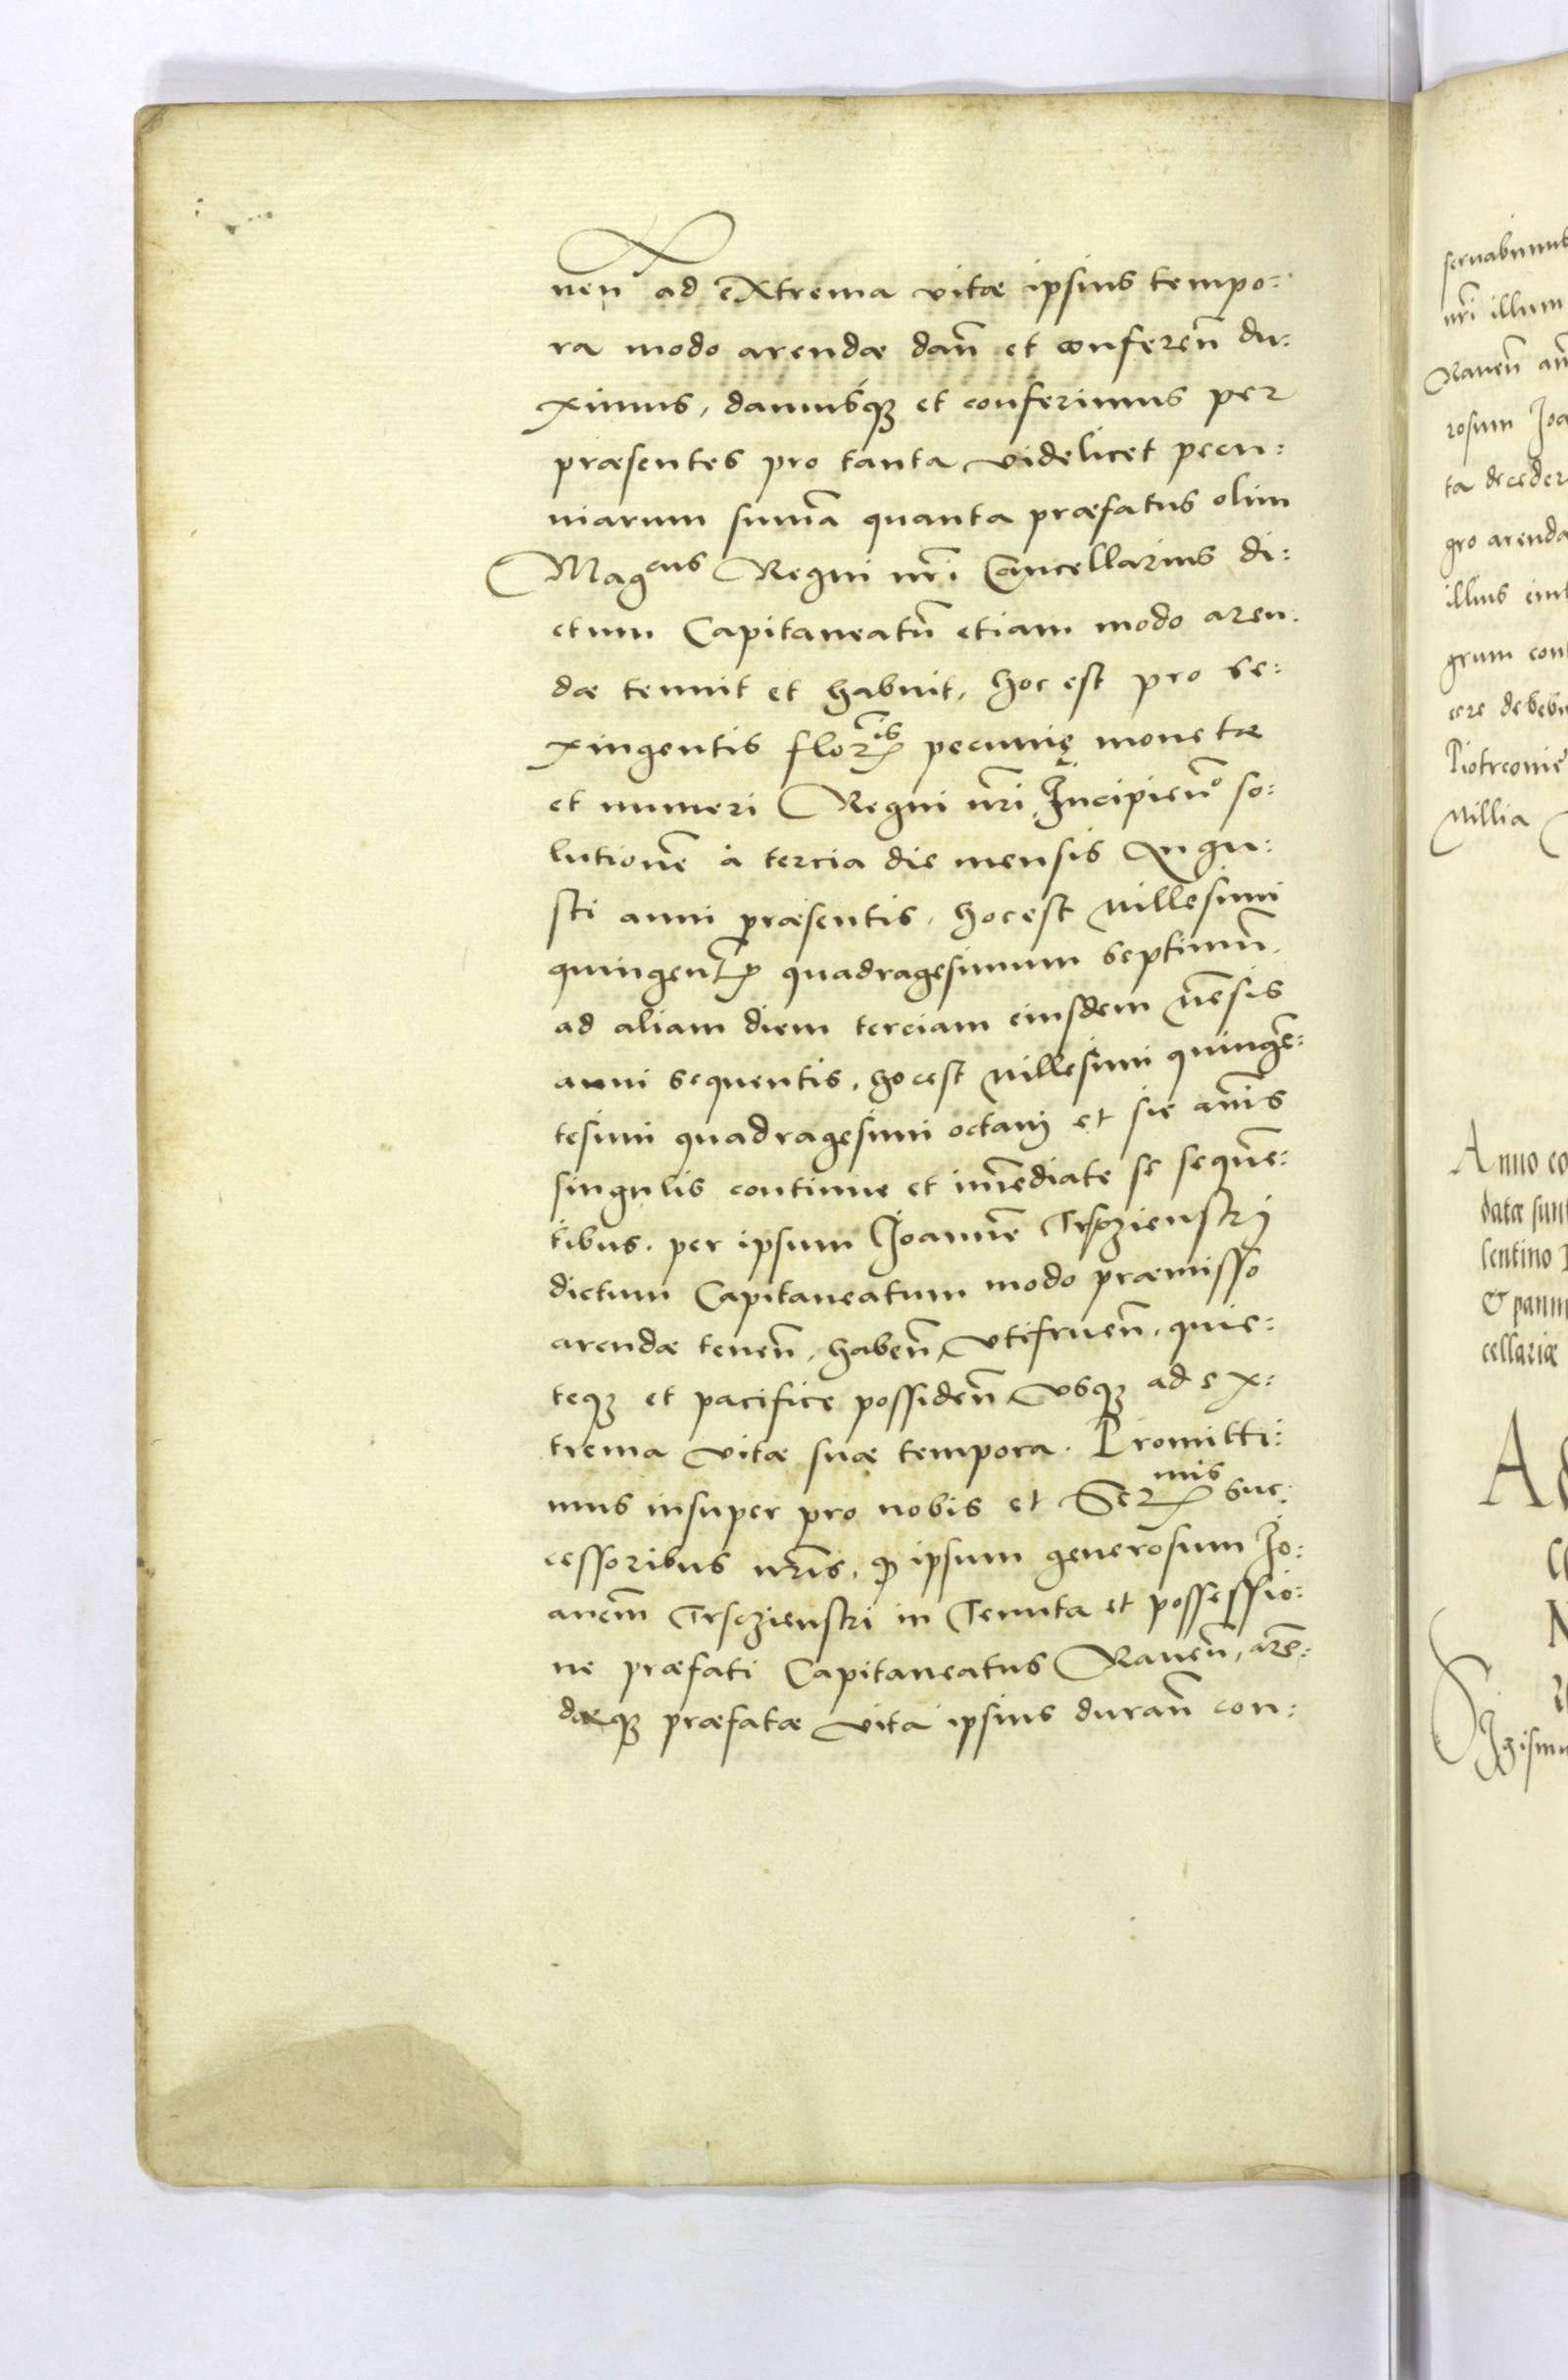 nen̄ ad extrema vitæ ipsius tempo:
ra modo arendæ dan̄ et conferen̄ du:
ximus, damusq; et conferimus per
præsentes pro tanta videlicet pecu:
niarum suma̅ quanta præfatus olim
Mag^cus Regni nr̄i Cancellarius di:
ctum Capitaneatū etiam modo aren:
dæ tenuit et habuit, hoc est pro se:
xingentis flor^is pecunię monetæ
et numeri Regni nr̄i, Incipien^o so:
lutionē à tercia die mensis Augu:
sti anni præsentis, hoc est Millesimi
quingen̄t quadragesimum septimū,
ad aliam diem terciam eiusdem mēsis
anni sequentis, hoc est Millesimi quingē:
tesimi quadragesimi octavi et sic annis
singulis continue et imēdiate se sequē:
tibus, per ipsum Joannē Trsczienskij
dictum Capitaneatum modo præmisso
arendæ tenen̄, haben̄, vtifruen̄, quie:
teq; et pacifice possiden̄ vsq; ad ex:
trema vitæ suæ tempora. Promitti:
mus insuper pro nobis et Ser^mis suc:
cessoribus nr̄is, q̄ ipsum generosum Jo:
anem̄ Trsczienski in Tenuta et possessio:
ne præfati Capitaneatus Raven̄, arē:
dæq; præfatæ vita ipsius duran̄ con:
servabimus
nr̄i illum
Raven̄
rosum Joa
ta deceder
gro arenda
illius
grum con
cere debebu
Piotrcoviē
Millia
Anno
datæ sunt
lentino
& pann
cellariæ
A
Sigismu